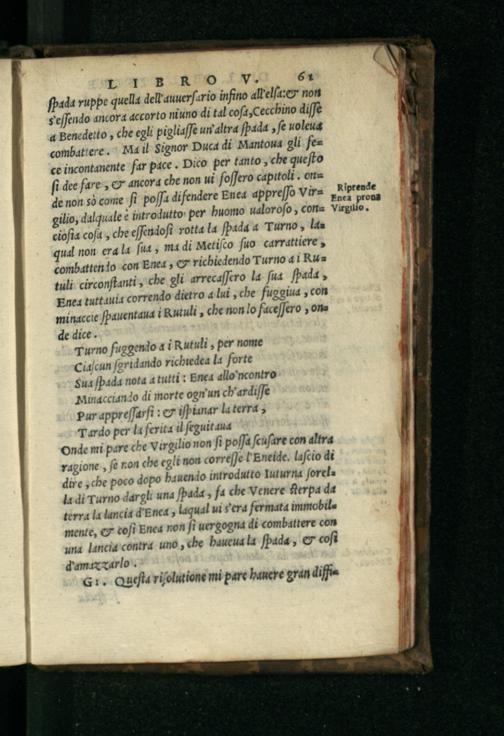 LIBRO V. 61
spada ruppe quella dell'auuersario infino all'elsa:& non
s'essendo ancora accorto niuno di tal cosa, Cecchino disse
a Benedetto, che egli pigliasse un'altra spada, se uoleua
combattere. Ma il Signor Duca di Mantoua gli fe=
ce incontanente far pace. Dico per tanto, che questo
si dee fare, & ancora che non ui fossero capitoli. on=
de non sò come si possa difendere Enea appresso Vir=
gilio, dalquale è introdutto per huomo ualoroso, con=
ciosia cosa, che essendosi rotta la spada a Turno, la=
qual non era la sua, ma di Metisco suo carrattiere,
combattendo con Enea, & richiedendo Turno a i Ru=
tuli circonstanti, che gli arrecassero la sua spada,
Enea tuttauia correndo dietro a lui, che fuggiua, con
minaccie spauentaua i Rutuli, che non lo facessero, on=
de dice.
Riprende
Enea prona
Virgilio.
Turno fuggendo a i Rutuli, per nome
Ciascun sgridando richiedea la forte
Sua spada nota a tutti: Enea allo'ncontro
Minacciando di morte ogn'un ch'ardisse
Pur appressarsi: & ispianar la terra,
Tardo per la ferita il seguitaua
Onde mi pare che Virgilio non si possa scusare con altra
ragione, se non che egli non corresse l'Eneide. lascio di
dire, che poco dopo hauendo introdutto Iuturna sorel=
la di Turno dargli una spada, fa che Venere sterpa da
terra la lancia d'Enea, laqual ui s'era fermata immobil=
mente, & così Enea non si uergogna di combattere con
una lancia contra uno, che haueua la spada, & così
d'amazzarlo.
GI. Questa risolutione mi pare hauere gran diffi=